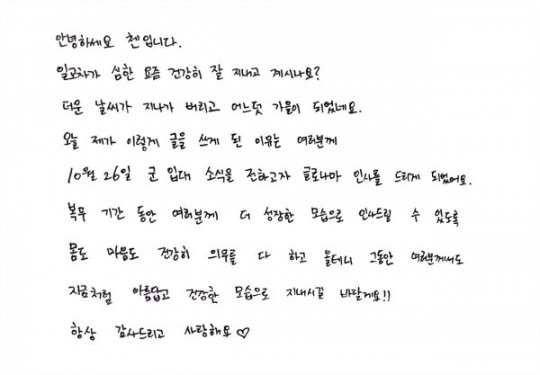 안녕하세요 첸입니다.
일교차가 심한 요즘 건강히 잘 지내고 계시나요?
더운 날씨가 지나가 버리고 어느덧 가을이 되었네요.
오늘 제가 이렇게 글을 쓰게 된 이유는 여러분께
10월 26일 군 입대 소식을 전하고자 글로나마 인사를 드리게 되었어요.
복무 기간 동안 여러분께 더 성장한 모습으로 인사드릴 수 있도록
몸도 마음도 건강히 의무를 다 하고 올테니 그동안 여러분께서도
지금처럼 아름답고 건강한 모습으로 지내시길 바랄게요!!
항상 감사드리고 사랑해요♡